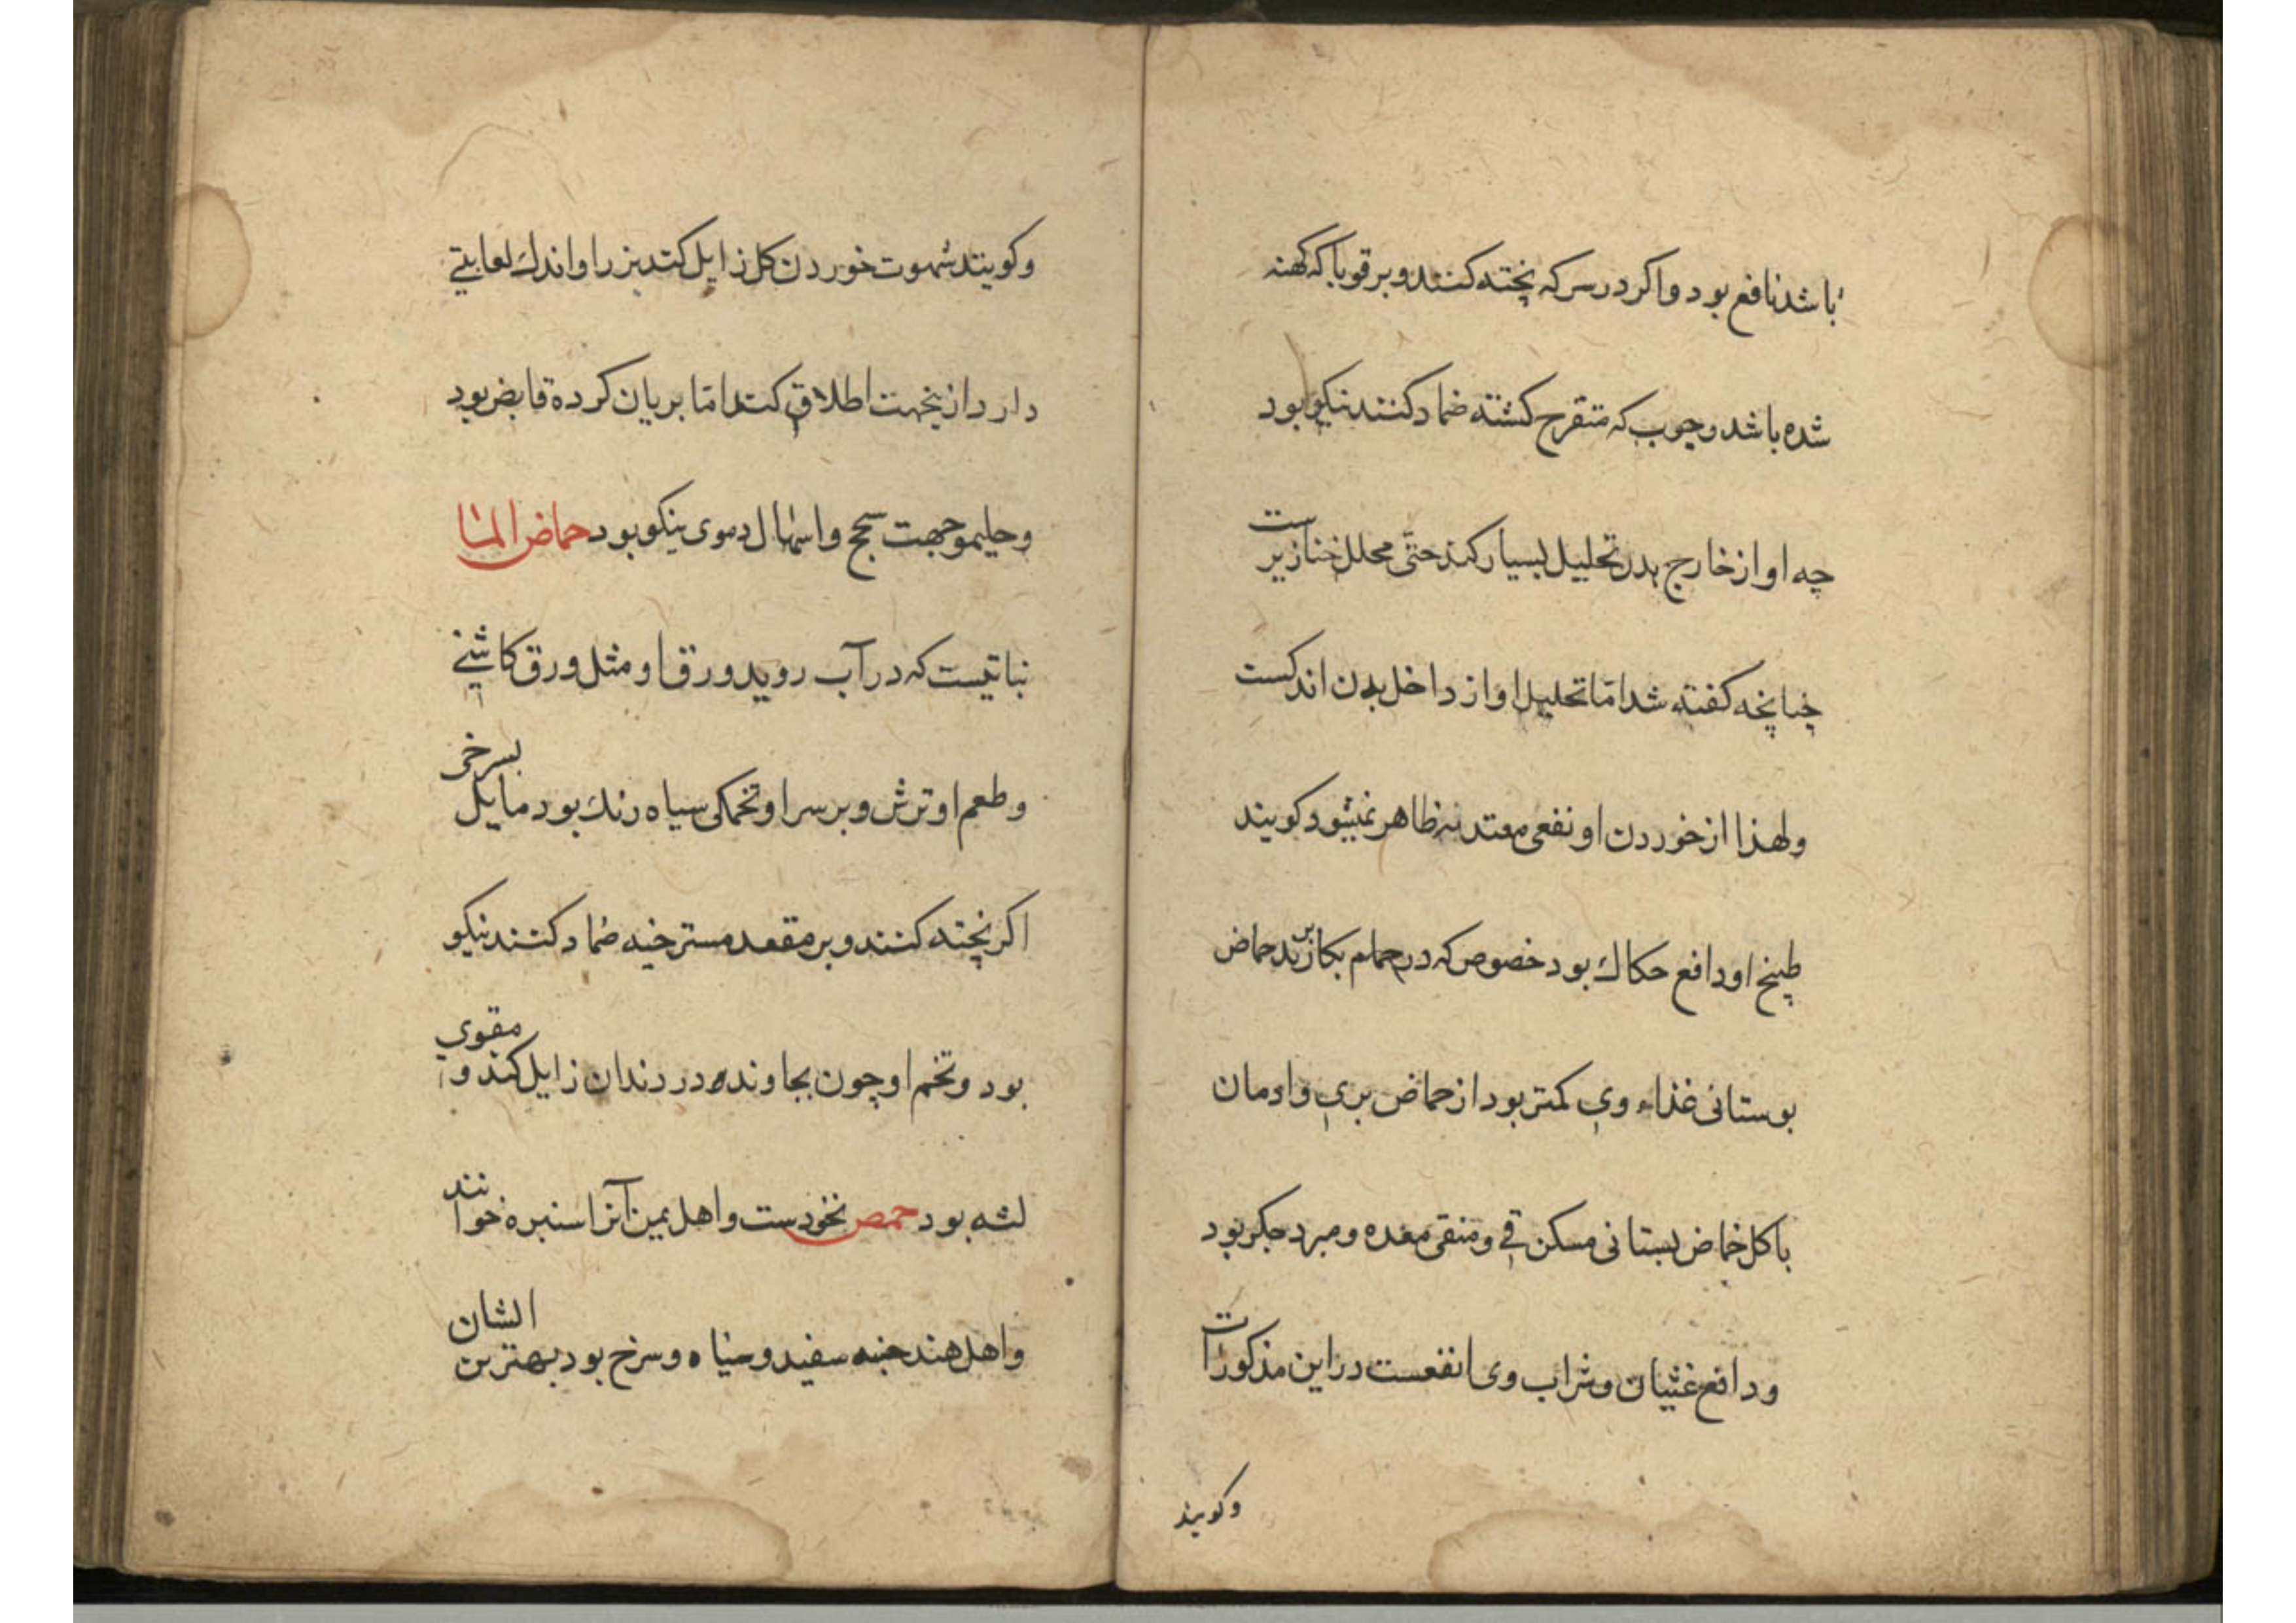 باشد نافع بود و اکر در سرکه پخته کنند و بر قوبا که کهنه
شده باشد و جوب که متقرح کشته ضماد کنند نیکو بود
چه او از خارج بدن تحلیل بسیار کند حتّی محلل خنازیر ست
چنانچه کفته شد امّا تحلیل او از داخل بدن اندکست
و لهذا از خوردن او نفعی معتد به ظاهر نمیشود کویند
طبیخ او دافع حکاك بود خصوص که در حمام بکار برند حماض
بوستانی غذاء وی کمتر بود از حماض بری و ادمان
باکل حماض بستانی مسکن قی و منقی معده و مبرد جکر بود
و دافع غثیان و شراب وی انفعست در این مذکورات
وکویند
وکویند شهوت خوردن کل زایل کند بزر او اندك لعابیتی
دارد از ینجهت اطلاق کند امّا بریان کرده قابض بود
و حلیمو جهت سحج و اسهال دموی نیکو بود حماض الما
نباتیست که در آب روید و ورق او مثل ورق کاشنی
و طعم او ترش و بر سر او تخمکی سیاه رنك بود مایل بسرخی
اکر پخته کنند و بر مقعد مسترخیه ضماد کنند نیکو
بود و تخم او چون بجاونده درد دندان زایل کند و مقوی
لثه بود حمص نخودست و اهل یمن آنرا سنبره خوانند
و اهل هند چنه سفید و سیاه و سرخ بود بهترین الشان